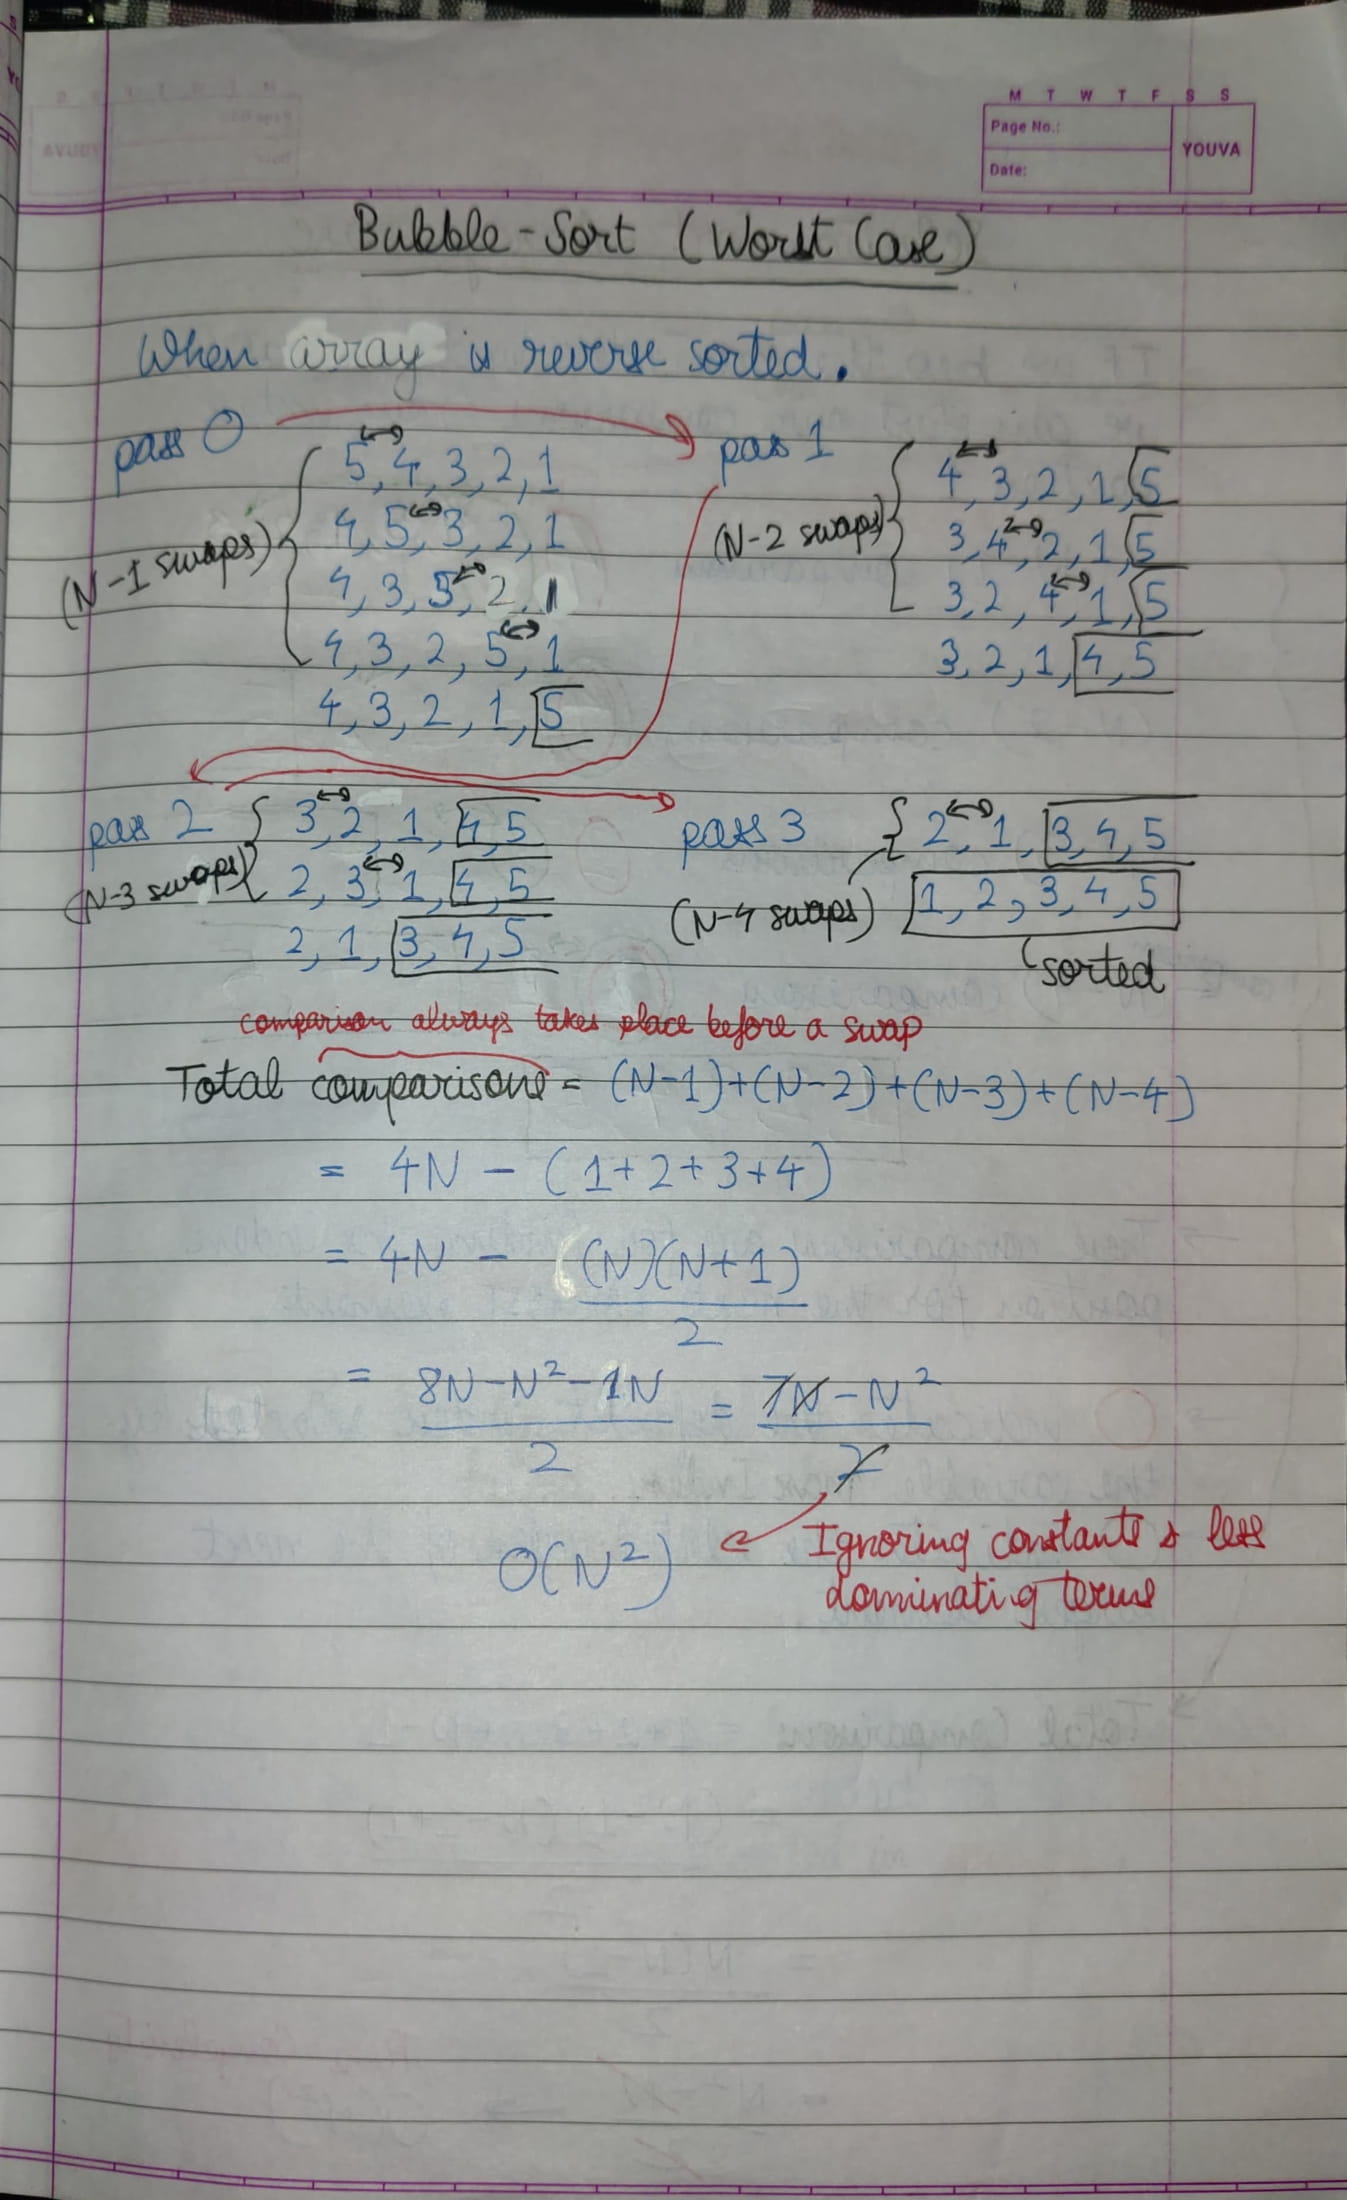 M T W T F S S
Page No.:
YOUVA
Date:
Bubble-Sort (Worst Case)
When array is reverse sorted.
pass 0
(N-1 swaps)
5, 4, 3, 2, 1
4, 5, 3, 2, 1
4, 3, 5, 2, 1
4, 3, 2, 5, 1
4, 3, 2, 1, 5
pass 1
(N-2 swaps)
4, 3, 2, 1, 5
3, 4, 2, 1, 5
3, 2, 4, 1, 5
3, 2, 1, 4, 5
pass 2
(N-3 swaps)
3, 2, 1, 4, 5
2, 3, 1, 4, 5
2, 1, 3, 4, 5
pass 3
(N-4 swaps)
2, 1, 3, 4, 5
1, 2, 3, 4, 5
sorted
comparison always takes place before a swap
Total comparisons = (N-1)+(N-2)+(N-3)+(N-4)
= 4N - (1+2+3+4)
= 4N - (N)(N+1)
2
= 8N-N²-1N = 7N-N²
2 2
O(N²)
Ignoring constants & less
dominating terms